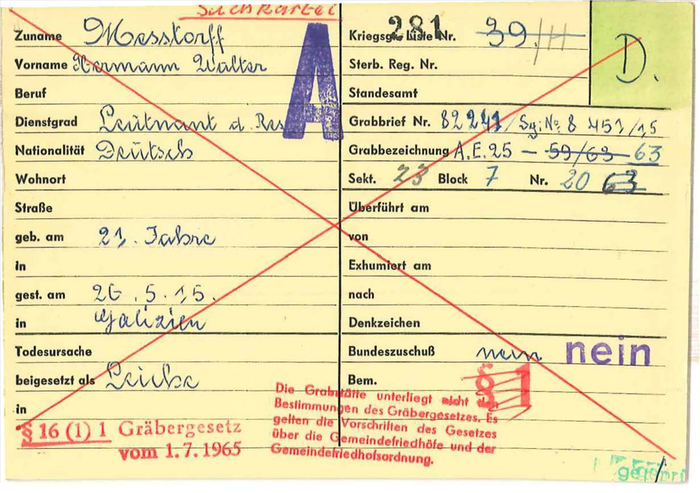 Suchkartei
Zuname Messtorff
Vorname Hermann Walter
Beruf
Dienstgrad Leutnant d. Res
Nationalität Deutsch
Wohnort
Straße
geb. am 21. Jahre
in
gest. am 26.5.15.
in Galizien
Todesursache
beigesetzt als Leiche
in
A
281
Kriegsgr. Liste Nr. 39/H
Sterb. Reg. Nr.
Standesamt
D.
Grabbrief Nr. 82241/Sg: No 8 453/15
Grabbezeichnung A.E. 25 — 59/63 63
Sekt. 23 Block 7 Nr. 20 63
Überführt am
von
Exhumiert am
nach
Denkzeichen
Bundeszuschuß nein nein
Bem.
§ 1
Die Grabstätte unterliegt nicht
Bestimmungen des Gräbergesetzes. Es
gelten die Vorschriften des Gesetzes
über die Gemeindefriedhöfe und der
Gemeindefriedhofsordnung.
§ 16 (1) 1 Gräbergesetz
vom 1.7.1965